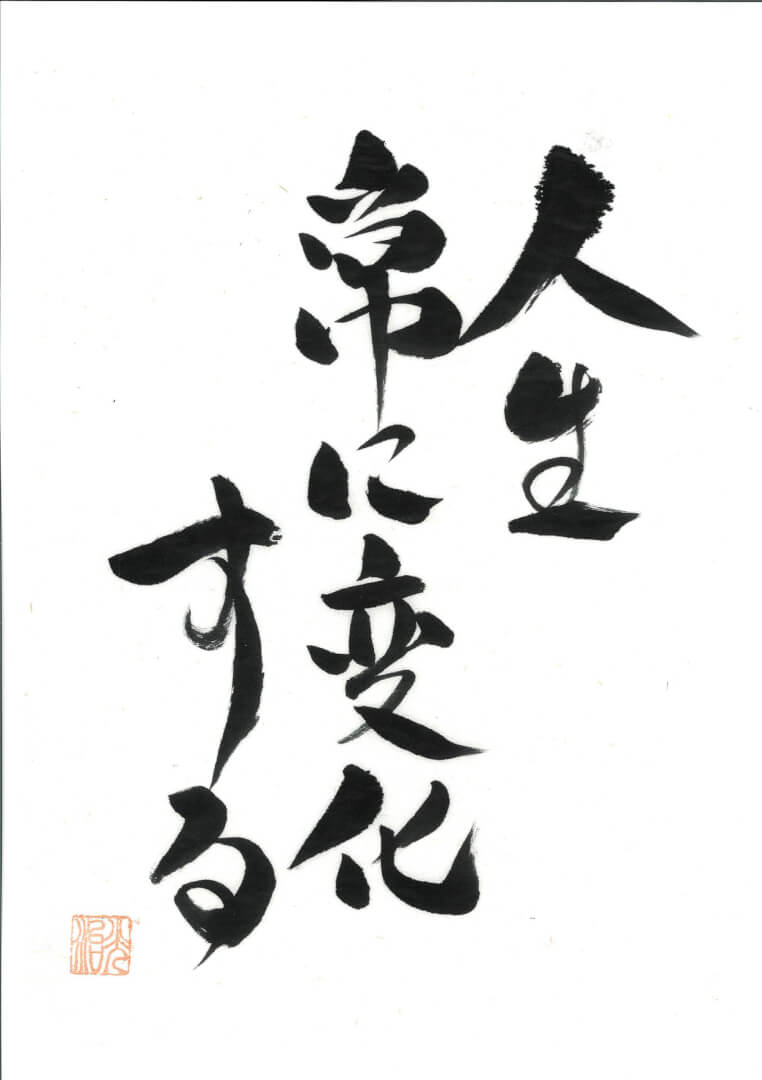 人生
常に変化
する